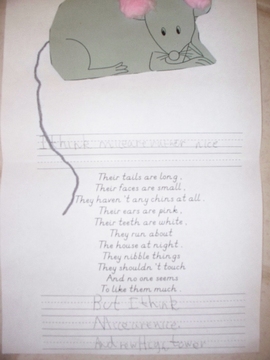 I think mice are rather nice
Their tails are long,
Their faces are small,
They haven't any chins at all.
Their ears are pink,
Their teeth are white,
They run about
The house at night.
They nibble things
They shouldn't touch
And no one seems
To like them much.
But I think
Mice are nice.
Andrew